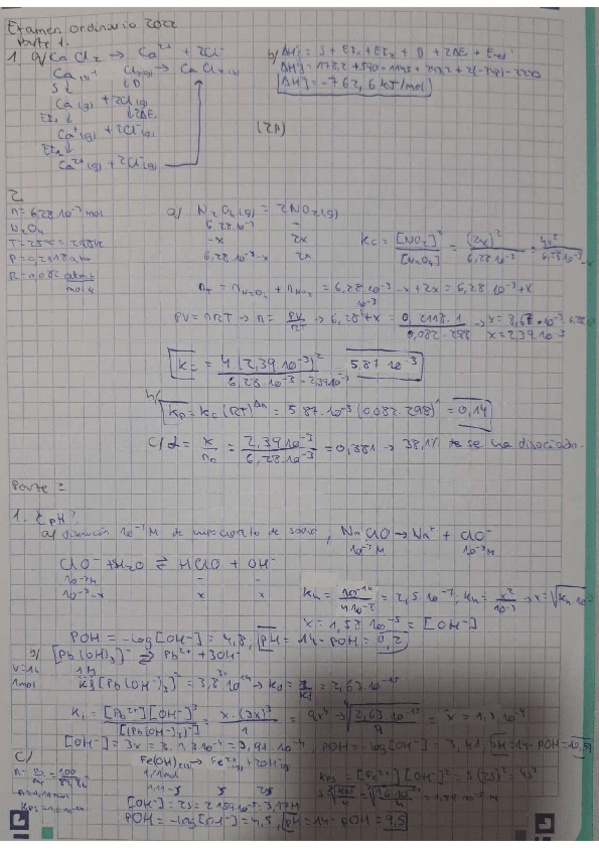 Examen ordinario 2022
Parte 1.
1. a) CaCl₂ → Ca²⁺ + 2Cl⁻
Ca(s) + Cl₂(g) → CaCl₂(s)
S↓ ↓D
Ca(g) + 2Cl(g)
EI₁ ↓ ↓2AE
Ca⁺(g) + 2Cl⁻(g)
EI₂
Ca²⁺(g) + 2Cl⁻(g)
b) ΔHf = S + EI₁ + EI₂ + D + 2AE + Ered
ΔHf = -762,6 kJ/mol
2
n = 6,28·10⁻³ mol
N₂O₄
T = 25ºC = 298K
P = 0,2118 atm
R = 0,082 atm·L
mol·K
a) N₂O₄(g) = 2NO₂(g)
6,28·10⁻³ -
-x 2x
6,28·10⁻³-x 2x
Kc = [NO₂]² / [N₂O₄] = (2x)² / 6,28·10⁻³ = 4x² / 6,28·10⁻³-x
nT = nN₂O₄ + nNO₂ = 6,28·10⁻³-x+2x = 6,28·10⁻³+x
PV = nRT → n = PV/RT → 6,28·10⁻³+x = 0,2118·1 / 0,082·298 → x = 8,67·10⁻³-6,28
x = 2,39·10⁻³
Kc = 4(2,39·10⁻³)² / 6,28·10⁻³-2,39·10⁻³ 5,87·10⁻³
b)
Kp = Kc(RT)^Δn = 5,87·10⁻³(0,082·298)¹ = 0,14
c) α = x/n₀ = 2,39·10⁻³ / 6,28·10⁻³ = 0,381 → 38,1% se ha disociado.
Parte 2
1. ¿pH?
a) disolución 10⁻³M de hipoclorito de sodio, NaClO → Na⁺ + ClO⁻
10⁻³M 10⁻³M
ClO⁻ + H₂O ⇌ HClO + OH⁻
10⁻³M - -
10⁻³-x x x
Kh = 10⁻¹⁴ / 4·10⁻⁸ = 2,5·10⁻⁷; Kh = x² / 10⁻³ → x = √Kh·10⁻³
x = 1,58·10⁻⁵ = [OH⁻]
POH = -log[OH⁻] = 4,8, PH = 14-POH =
b) [Pb(OH)₃]⁻ ⇌ Pb²⁺ + 3OH⁻
V = 1L 1M
1mol
Kf [Pb(OH)₃]⁻ = 3,8·10¹⁴ → Kd = 1/Kf = 2,63·10⁻¹⁵
[Pb²⁺][OH⁻]³ / [[Pb(OH)₃]⁻] = x·(3x)³ / 1 = x = 1,3·10⁻⁴
[OH⁻] = 3x = 3·1,3·10⁻⁴ = 3,91·10⁻⁴, POH = -log[OH⁻] = 3,41, PH = 14-POH = 10,59
c)
Fe(OH)₂(s) → Fe²⁺(g) + 2OH⁻(g)
S 2S
[Fe²⁺][OH⁻]² = S(2S)² = 4S³
POH = -log[OH⁻] = 4,5, PH = 14-POH = 9,5